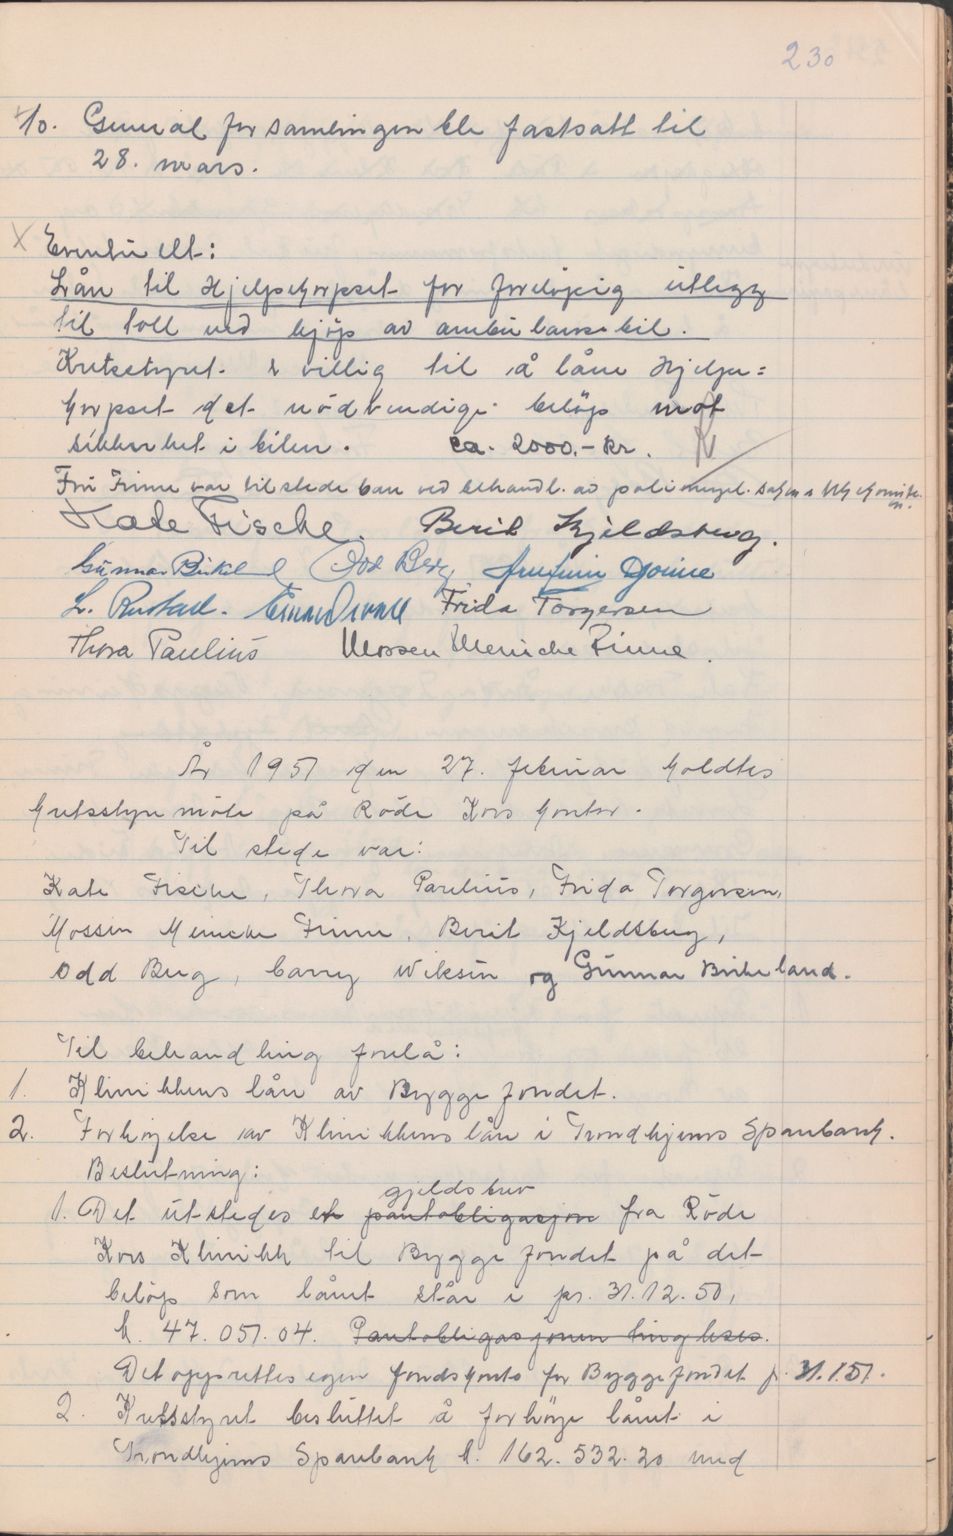 230
10. Generalforsamlingen ble fastsatt til
28. mars.
X Eventuelt:
Lån til Hjelpekorpset for foreløpig utlegg
til toll ved kjöp av ambulansebil.
Kretsstyret er villig til å låne Hjelpe=
korpset det nödvendige belöp mot
sikkerhet i bilen. ca. 2000.- kr.
Fru Finne var tilstede bare ved behandl. av
Kate Fische. Berit Kjeldsberg.
Gunnar Birkel Odd Berg
L. Rustad. Frida Torgersen
Thora Paulius Mossen Meincke Finne.
År 1951 den 27. februar holdtes
kretsstyremöte på Röde Kors kontor.
Til stede var:
Kate Fische, Thora Paulius, Frida Torgersen,
Mossen Meincke Finne, Berit Kjeldsberg,
Odd Berg, Carry Wiksén og Gunnar Birkeland.
Til behandling forelå:
1. Klinikkens lån av Byggefondet.
2. Forhöyelse av Klinikkens lån i Trondhjems Sparebank.
Beslutning:
gjeldsbrev
1. Det utstedes et pantobligasjon fra Röde
Kors Klinikk til Byggefondet på det
belöp som lånet står i pr. 31.12.50,
k. 47.051.04. Pantobligasjonen tinglese.
Det opprettes egen fondskonto for Byggefondet p. 31.1.51.
2. Kretsstyret besluttet å forhöye lånet i
Trondhjems Sparebank k. 162.532.20 med